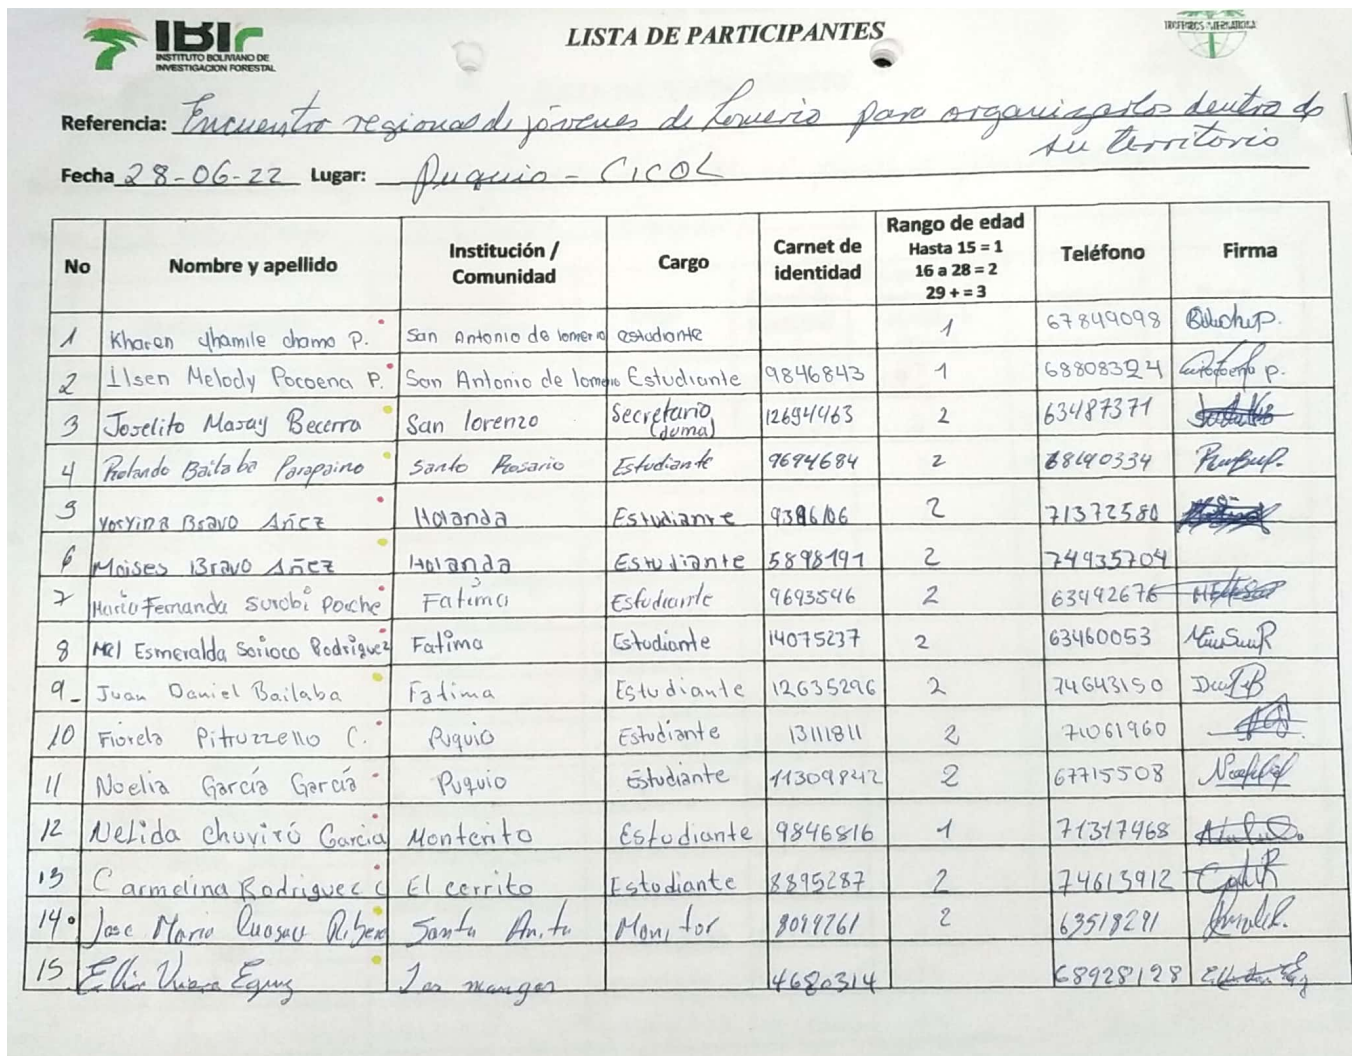 IBIF
INSTITUTO BOLIVIANO DE
INVESTIGACION FORESTAL
LISTA DE PARTICIPANTES
Referencia: Encuentro regional de jóvenes de Lomerio para organizarlos dentro de
su territorio
Fecha 28-06-22 Lugar: Puquio - CICOL
No Nombre y apellido Institución / Comunidad Cargo Carnet de identidad Rango de edad Hasta 15 = 1 16 a 28 = 2 29 + = 3 Teléfono Firma
1 Kharen yhamile chamo P. San Antonio de lomerio estudiante 1 67849098
2 Ilsen Melody Pocoena P. San Antonio de lomerio Estudiante 9846843 1 68808324
3 Joselito Masay Becerra San lorenzo Secretario (duma) 12694463 2 63487371
4 Rolando Bailaba Parapaino Santo Rosario Estudiante 9694684 2 68690334
5 Yosyina Bravo Añez Holanda Estudiante 2 71372580
6 Moises Bravo Añez Holanda Estudiante 5898191 2 74935704
7 Maria Fernanda Surobi Poiche Fatima Estudiante 9693546 2 63492676
8 Mel Esmeralda Sorioco Rodriguez Fatima Estudiante 14075237 2 63460053
9 Juan Daniel Bailaba Fatima Estudiante 12635296 2 74643150
10 Fiorela Pitruzzello C. Puquio Estudiante 13111811 2 71061960
11 Noelia García García Puquio Estudiante 11309842 2 67715508
12 Nelida Chuvirú Garcia Monterito Estudiante 9846816 1 71317968
13 Carmelina Rodriguez C El cerrito Estudiante 8895287 2 74613912
14 Jose Mario Ribera Santa Anita Monitor 2 63518291
15 Los mangos 4680314 68928128